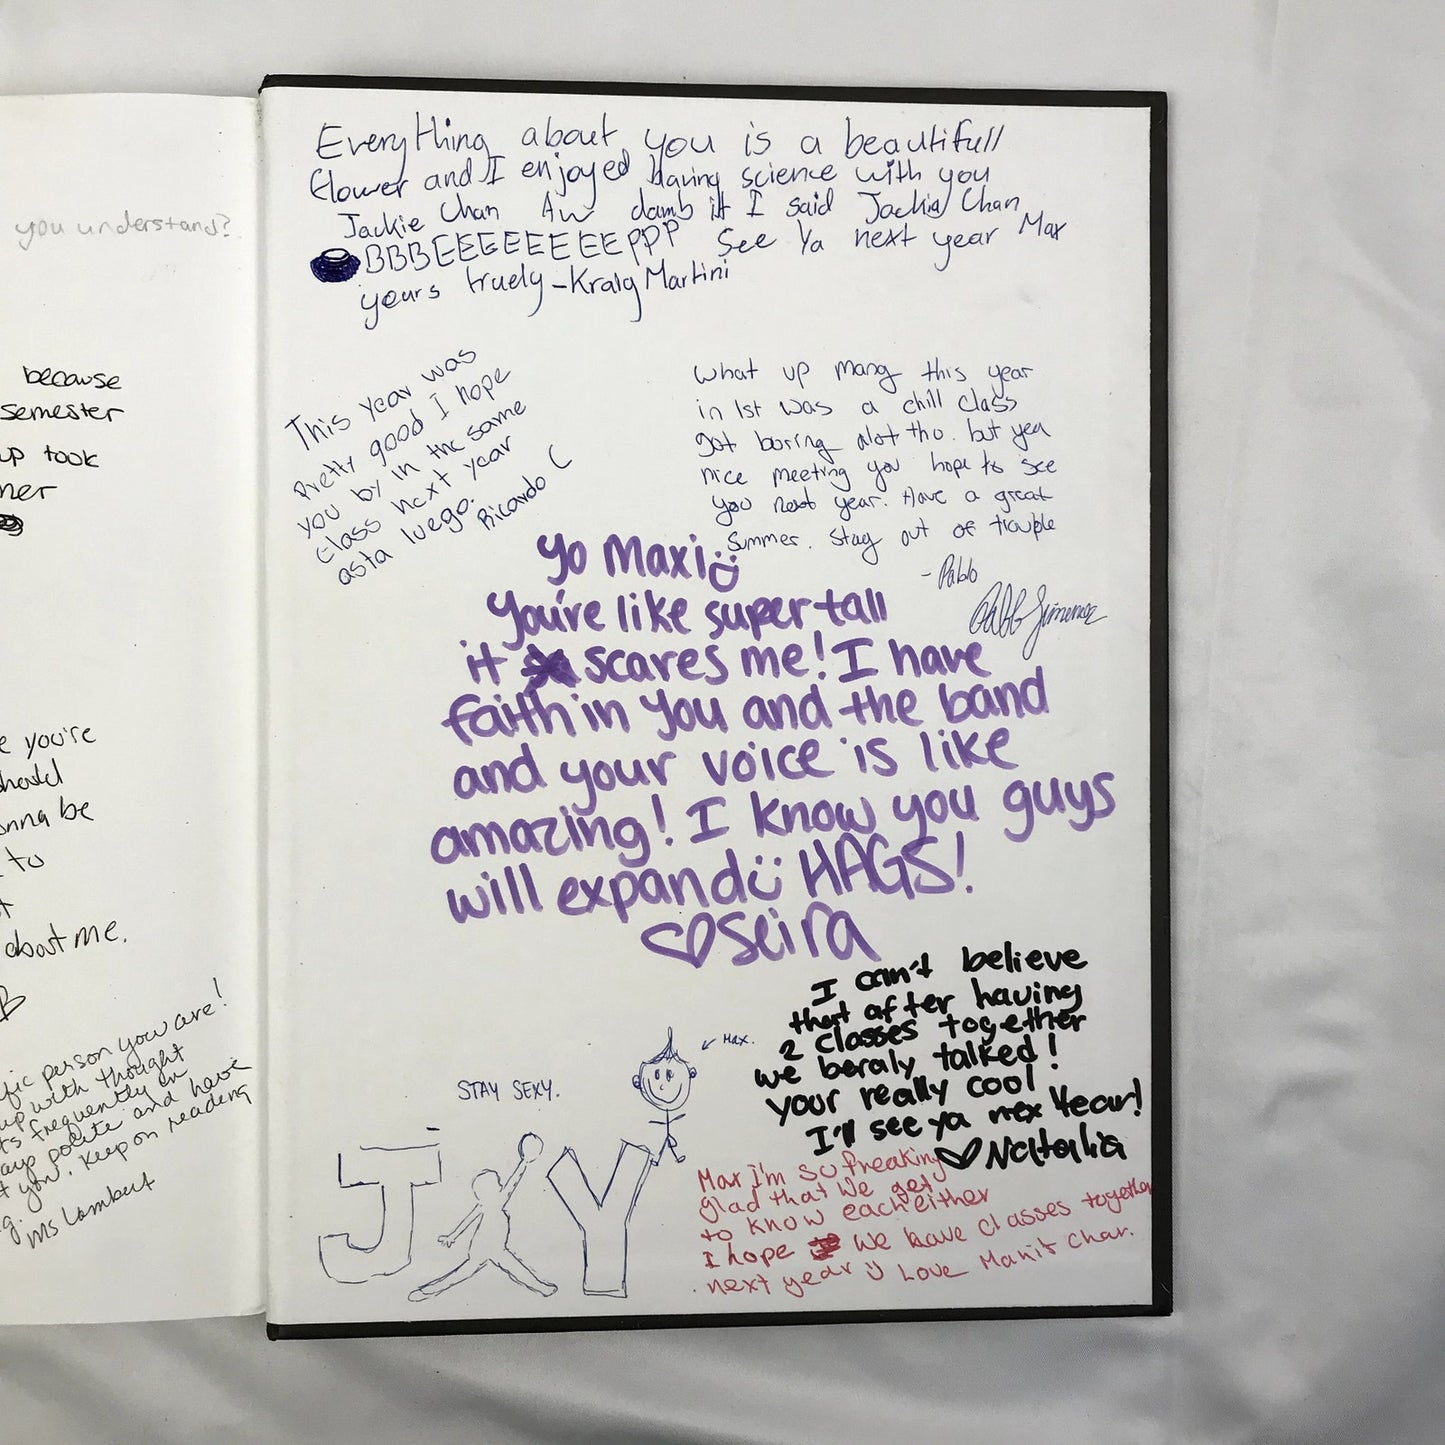 you understand?
because
semester
up took
ner
you're
should
onna be
to
about me.
fic person you are!
up with thought
ts frequently on
polite and have
you. Keep on reading
Ms Lambert
Everything about you is a beautifull
flower and I enjoyed having science with you
Jackie Chan Aw damb it I said Jackie Chan
BBBEEEEEEEEPPP See Ya next year Max
yours truely - Kraig Martini
This year was
Pretty good I hope
you by in the same
Class next year
asta luego. Ricardo C
What up mang this year
in 1st was a chill class
got boring alot tho. but yea
nice meeting you hope to see
you next year. Have a great
Summer. Stay out of trouble
- Pablo
Jimenez
Yo Maxi
You're like super tall
it scares me! I have
faith in you and the band
and your voice is like
amazing! I know you guys
will expand HAGS!
Seira
I can't believe
that after having
2 classes together
we beraly talked!
your really cool
I'll see ya nex Year!
Natalia
STAY SEXY.
MAX.
JAY
Max I'm so freaking
glad that we get
to know eacheither
I hope we have classes together
next year Love Manit Char.